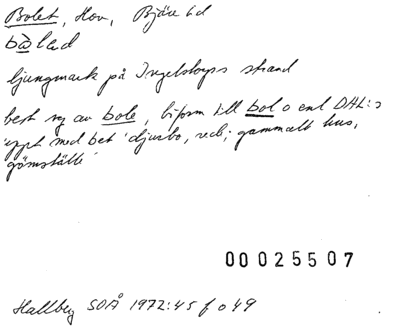 Bolet, Hov, Bjäre hd
ljungmark på Ingelstorps strand
best sg av bole, biform till bol o enl DAL:s
uppt med bet 'djurbo, rede; gammalt hus,
gömställe'
00025507
Hallberg SOÅ 1972:45 f o 49